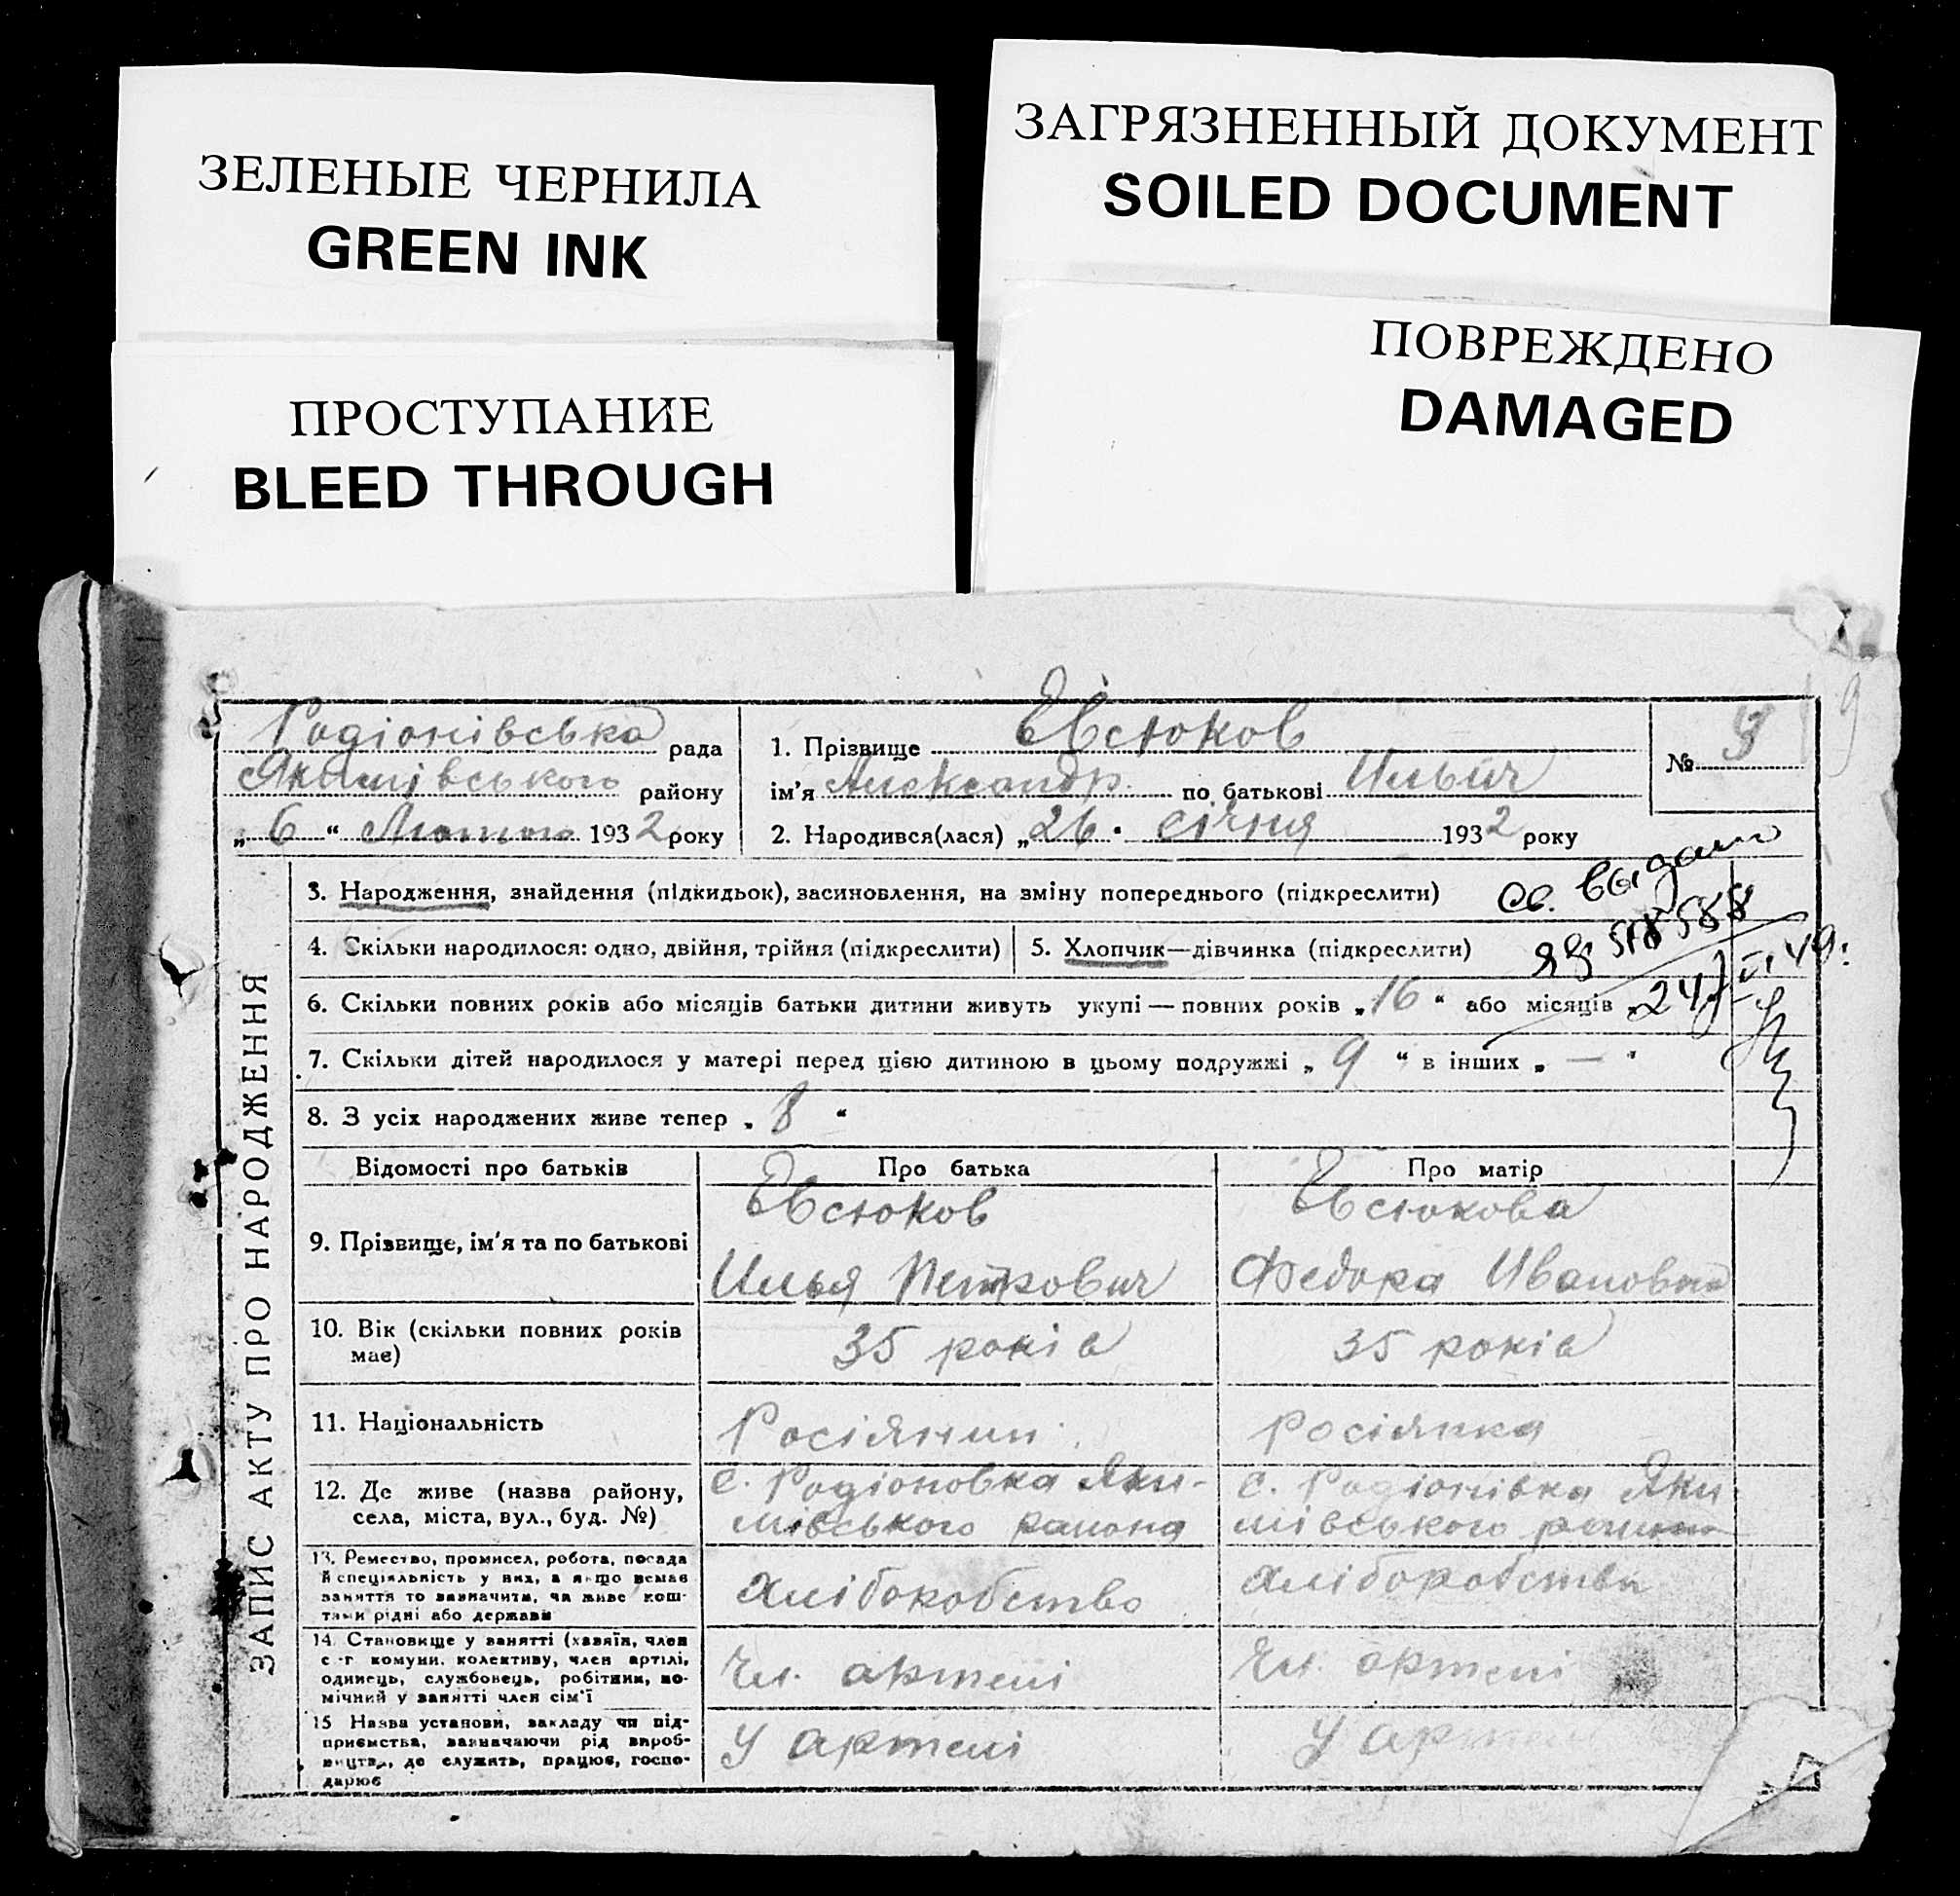 ЗЕЛЕНЫЕ ЧЕРНИЛА
GREEN INK
ЗАГРЯЗНЕННЫЙ ДОКУМЕНТ
SOILED DOCUMENT
ПРОСТУПАНИЕ
BLEED THROUGH
ПОВРЕЖДЕНО
DAMAGED
9
Родіонівська рада
Якимівського району
„6“ Лютого 1932 року
1. Прізвище Евсюков
ім'я Александр по батькові Ильич
2. Народився(лася) „26. січня 1932 року
№ 3
ЗАПИС АКТУ ПРО НАРОДЖЕННЯ
3. Народження, знайдення (підкидьок), засиновлення, на зміну попереднього (підкреслити)
св. выдано
4. Скільки народилося: одно, двійня, трійня (підкреслити)
5. Хлопчик—дівчинка (підкреслити)
6. Скільки повних років або місяців батьки дитини живуть укупі — повних років „16“ або місяців „
7. Скільки дітей народилося у матері перед цією дитиною в цьому подружжі „9“ в інших „—“
8. З усіх народжених живе тепер „8“
Відомості про батьків Про батька Про матір
9. Прізвище, ім'я та по батькові
Евсюков
Илья Петрович
Евсюкова
Федора Ивановна
10. Вік (скільки повних років
має)
35 років
35 років
11. Національність
Росіянин
Росіянка
12. Де живе (назва району,
села, міста, вул., буд. №)
с. Родіоновка Яки-
мівського района
с. Родіонівка Яки
мівського района
13. Ремество, промисел, робота, посада
й спеціяльність у них, а якщо немає
заняття то зазначити, чи живе кош-
тами рідні або держави
Хліборобство
Хліборобство
14. Становище у занятті (хазяїн, член
с.-г. комуни, колективу, член артілі,
одинець, службонець, робітник, по-
мічний у занятті член сім'ї
Чл. артелі
Чл. артелі
15 Назва установи, закладу чи під-
приємства, зазначаючи рід вироб-
ництва, де служить, працює, госпо-
дарює
У артелі
У артелі